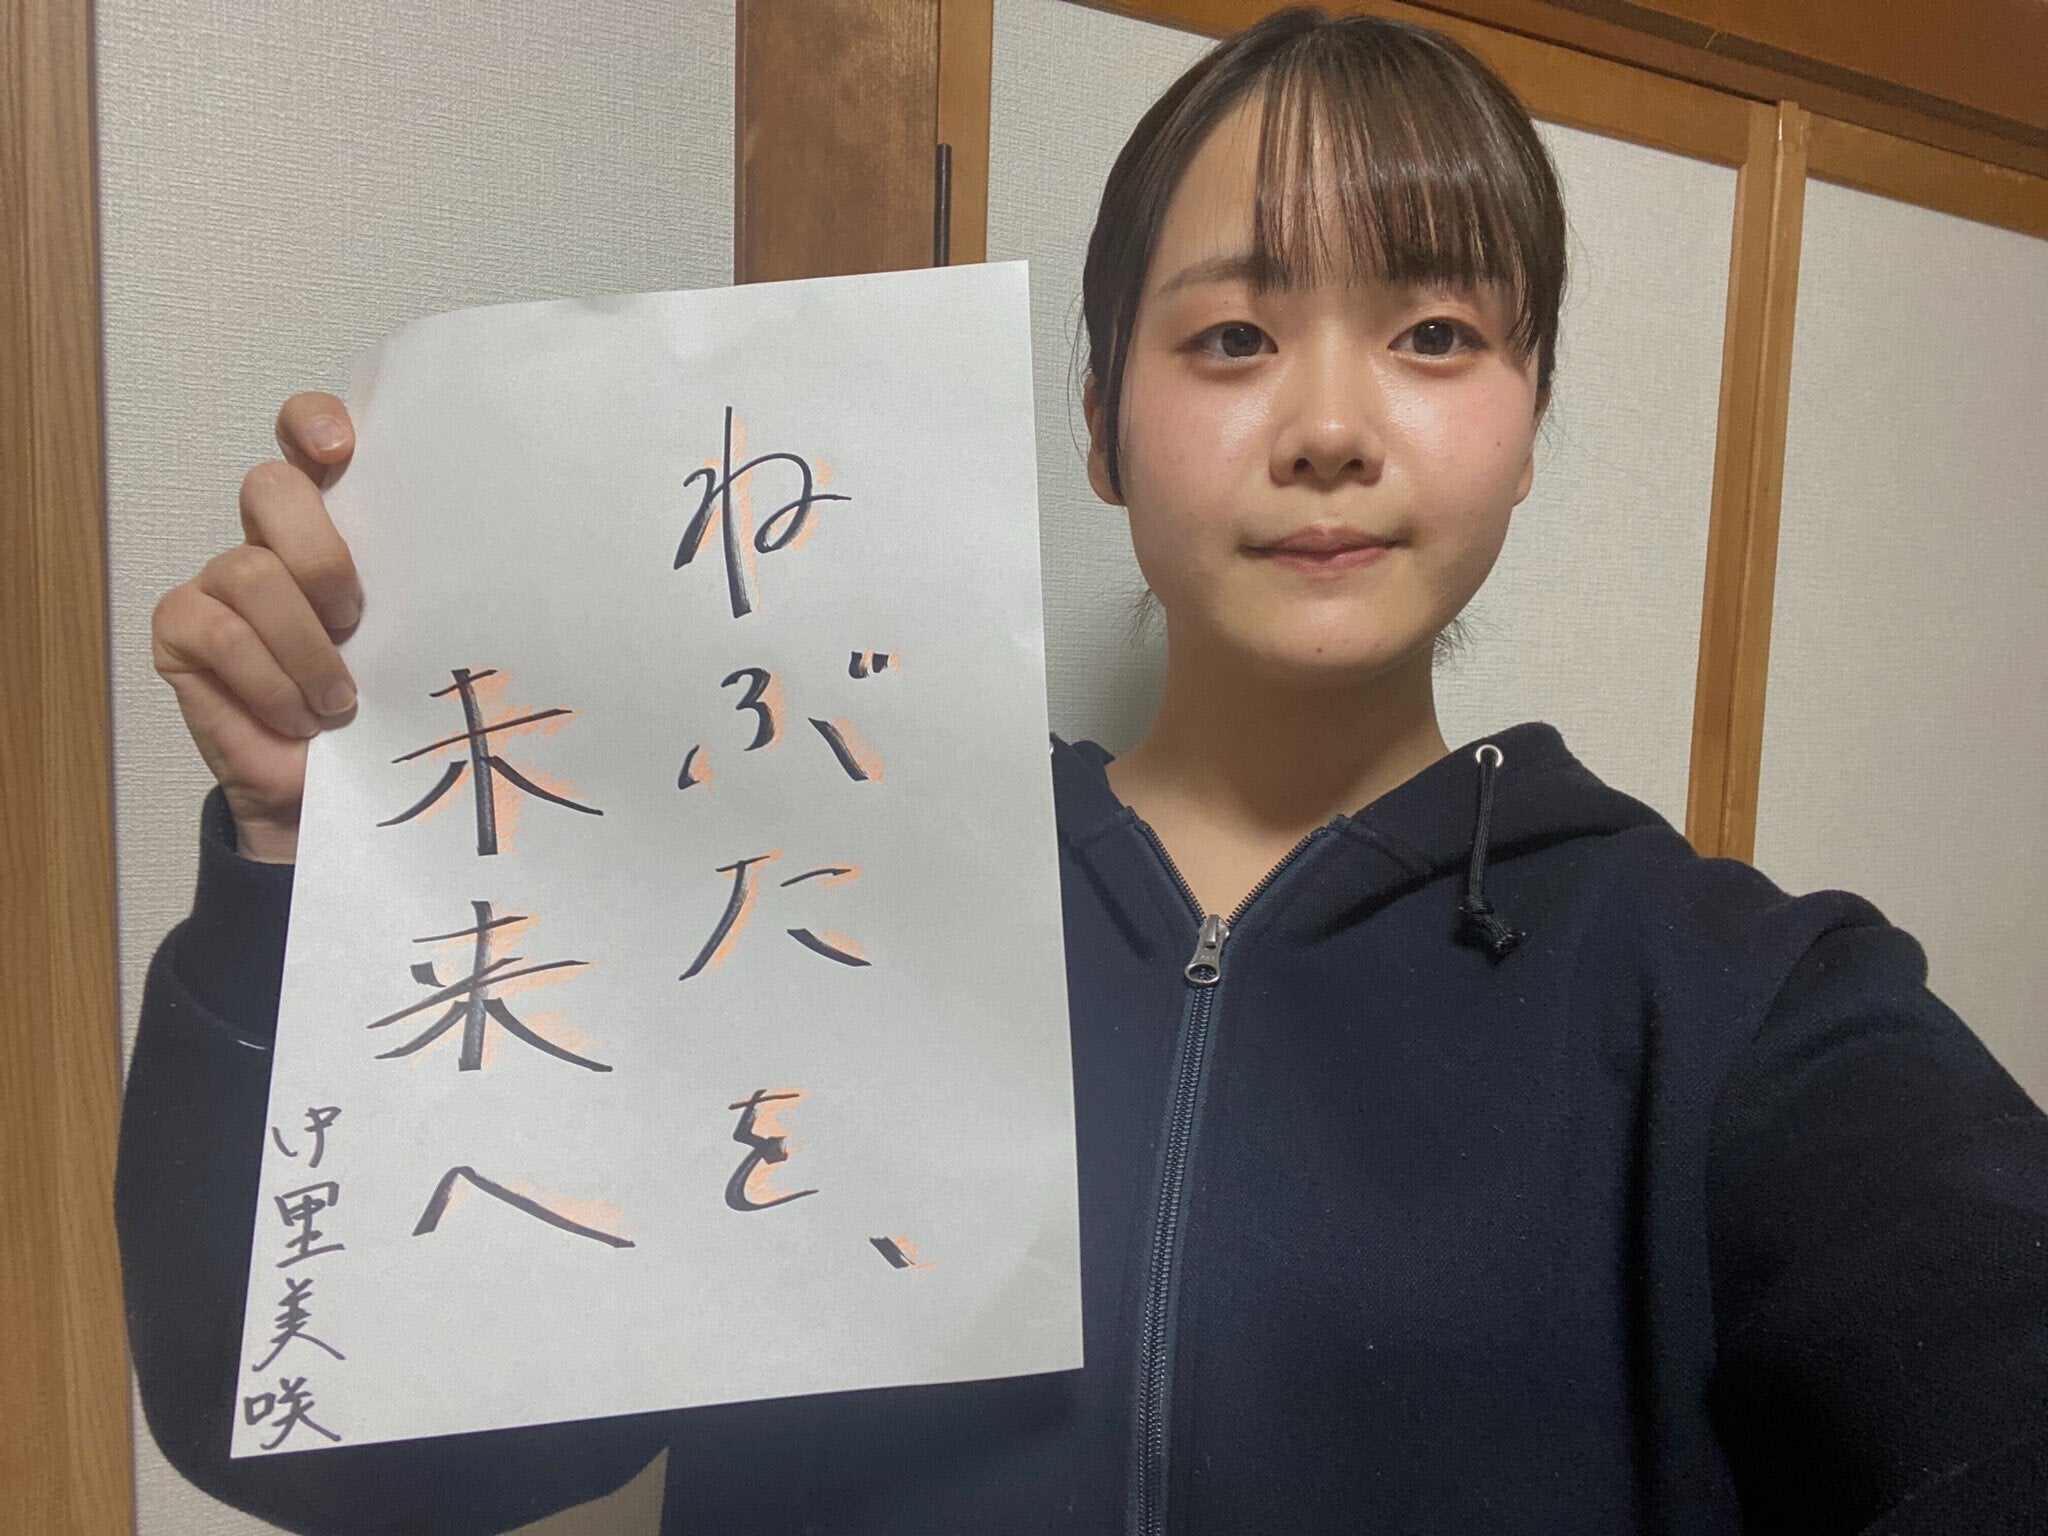 ねぶたを、
未来へ
伊里美咲